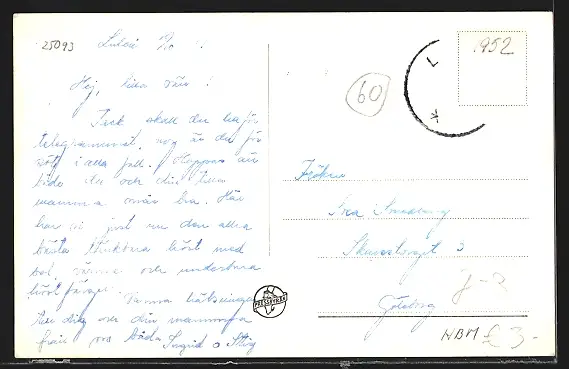 25093
Luleå
1952
60
Hej, lilla vän!
Tack skall du ha för
telegrammet, nog är du för
söt i alla fall. Hoppas att
både du och din lilla
mamma mår bra. Här
har vi just nu den allra
bästa höst med
sol, värme och underbara
höstfärger.
Varma hälsningar
till dig och din mamma
från oss båda Ingrid o Stig
Fröken
3
Göteborg
HBM £3-